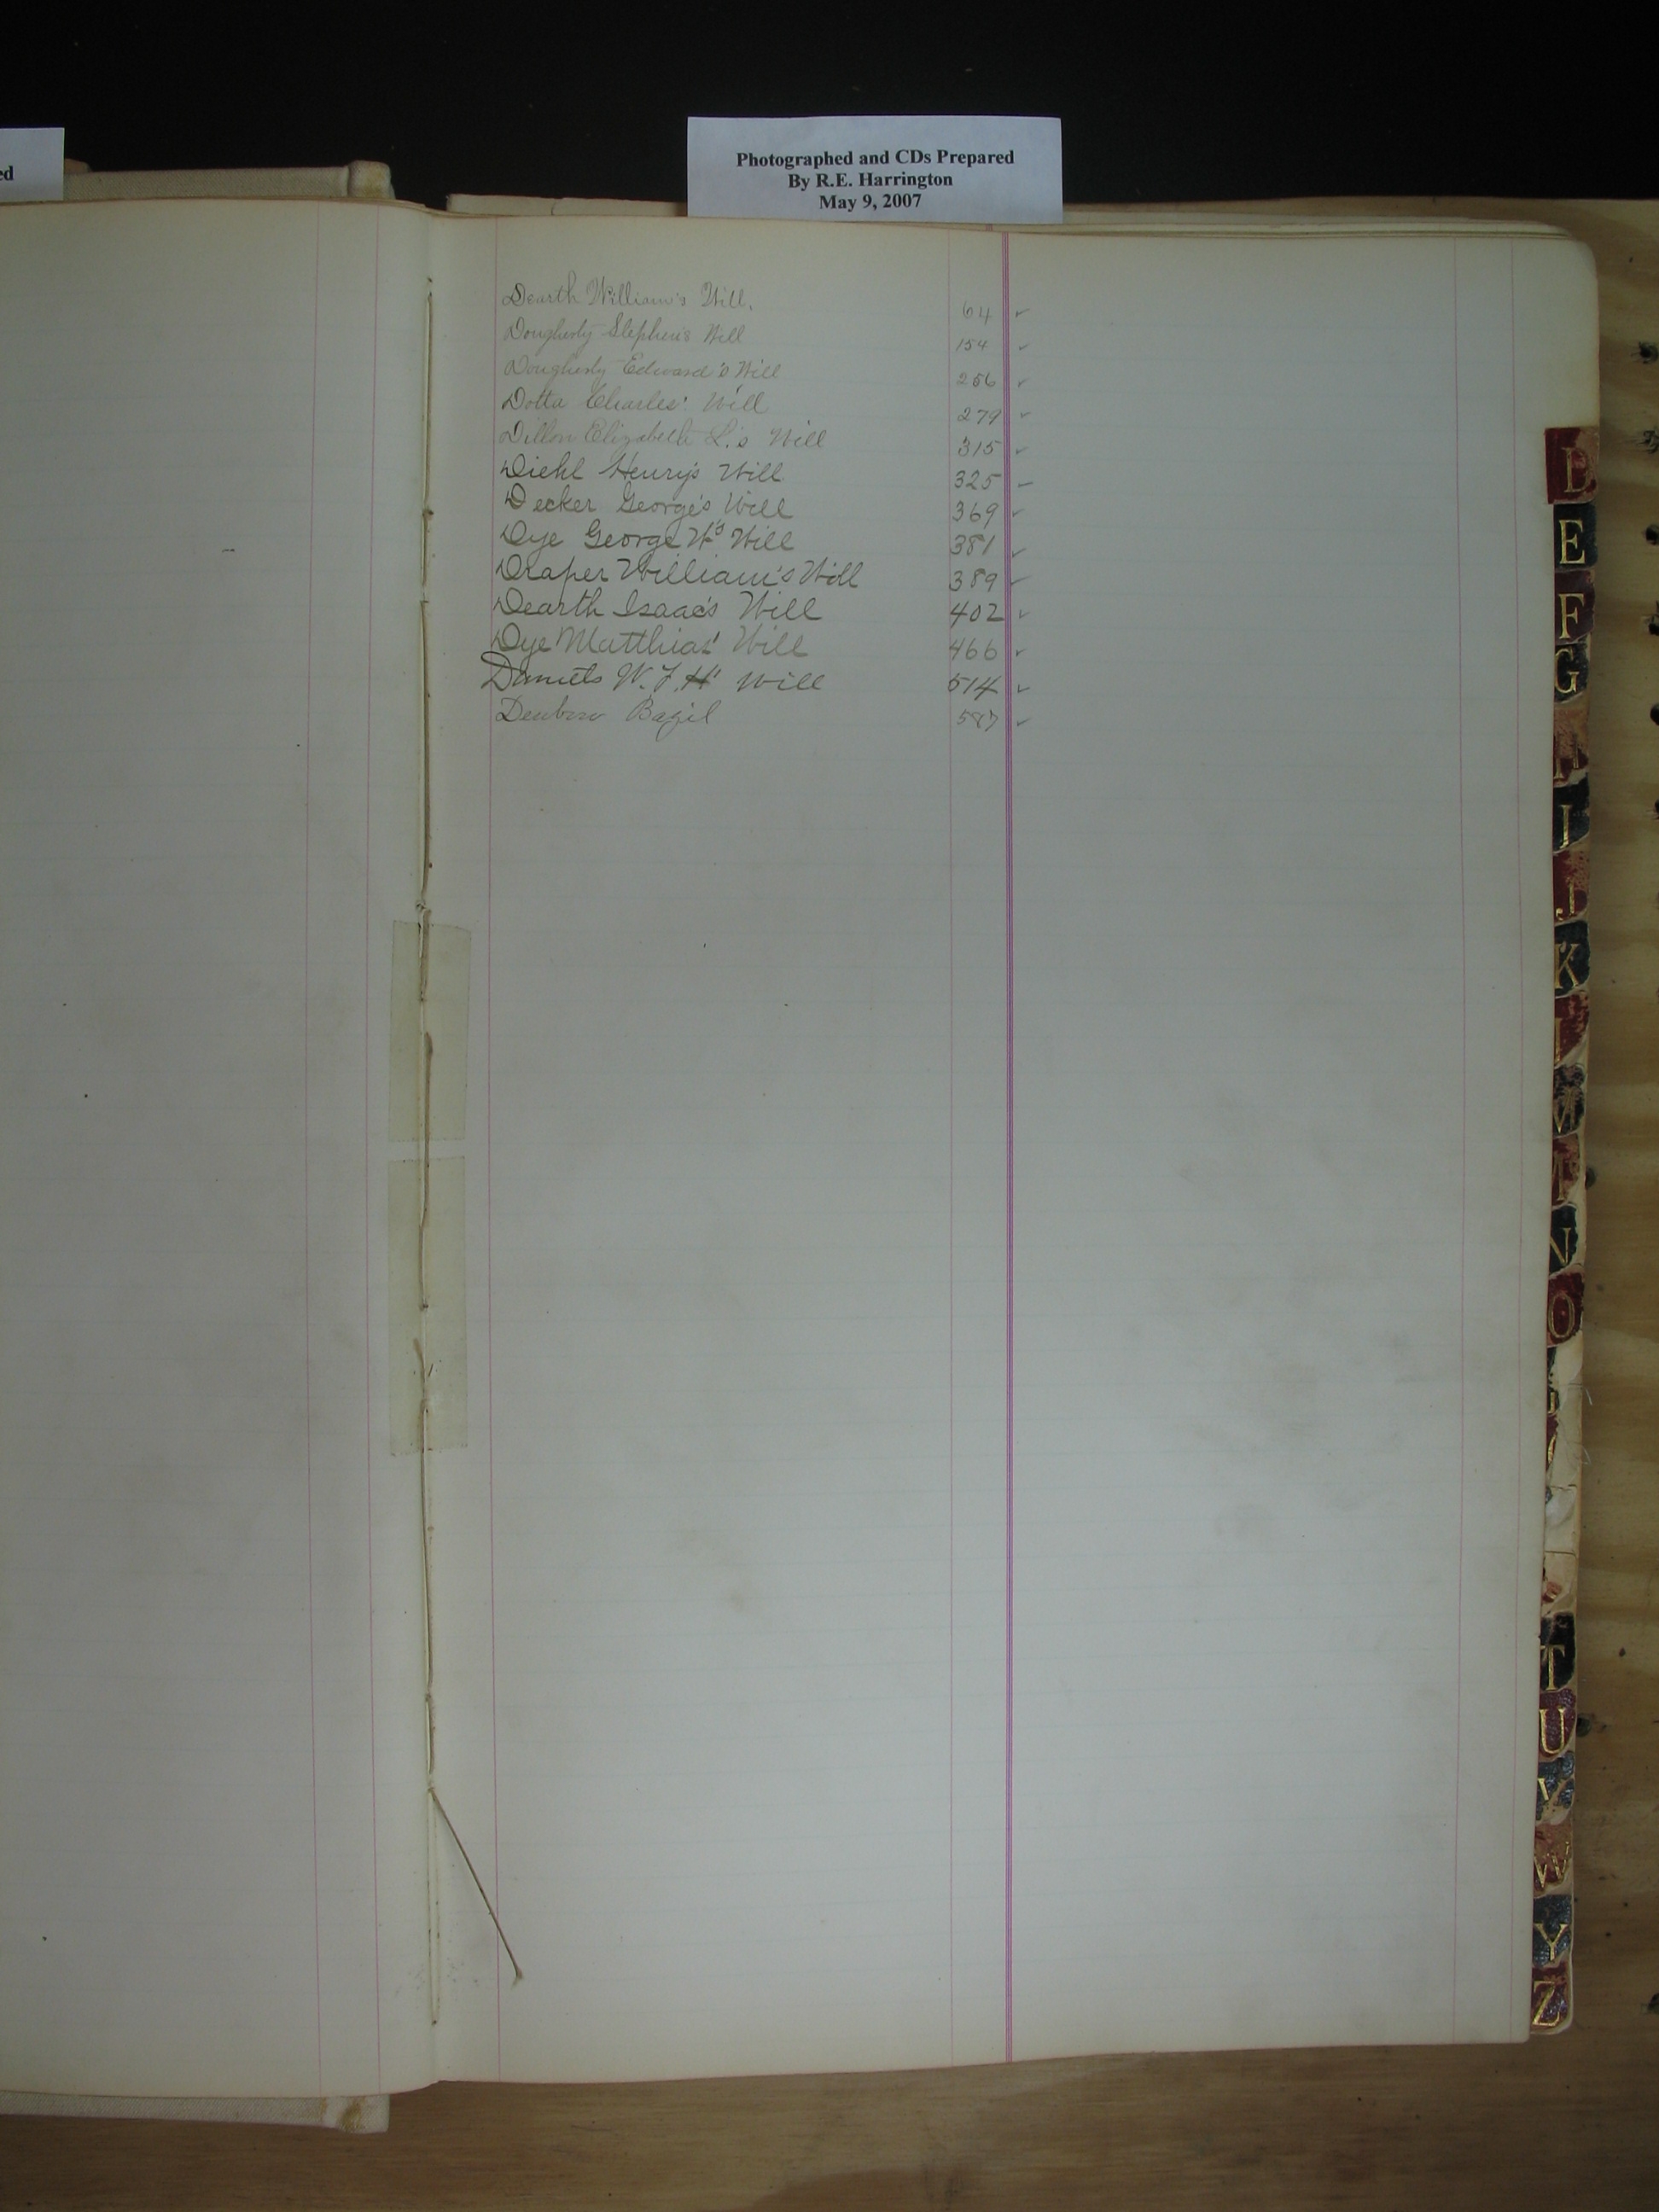 ed
Photographed and CDs Prepared
By R.E. Harrington
May 9, 2007
Dearth William's Will. 64 ✓
Dougherty Stephen's Will 154 ✓
Dougherty Edward's Will 256 ✓
Dotta Charles' Will 279 ✓
Dillon Elizabeth L.'s Will 315 ✓
Diehl Henry's Will 325 ✓
Decker George's Will 369 ✓
Dye George W's Will 381 ✓
Draper William's Will 389 ✓
Dearth Isaac's Will 402 ✓
Dye Matthias' Will 466 ✓
Daniels W. F. H' Will 514 ✓
Denbow Bazil 587 ✓
D
E
F
G
H
I
J
K
L
M
N
O
T
U
V
W
Y
Z